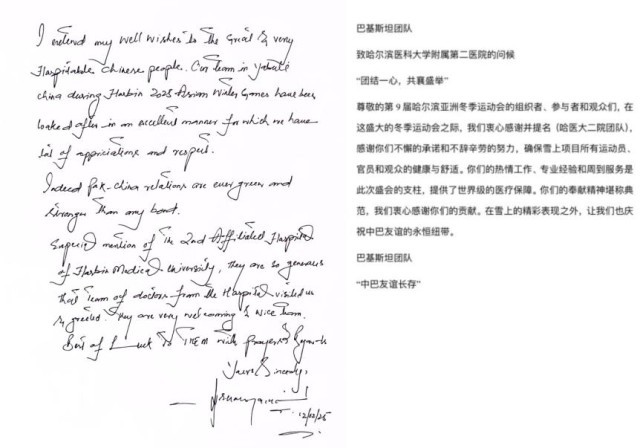 I extend my well wishes to the Great & very
Hospitable Chinese people. Our team in Yabuli
China during Harbin 2025 Asian Winter Games have been
looked after in an excellent manner for which we have
lot of appreciations and respect.
Indeed Pak-China relations are ever green and
stronger than any bond.
Especial mention of the 2nd Affiliated Hospital
of Harbin Medical University, they are so generous
that team of doctors from the Hospital visited us
& greeted. They are very welcoming & nice team.
Best of Luck to THEM with prayers & Regards
Yours Sincerely,
12/02/25
巴基斯坦团队
致哈尔滨医科大学附属第二医院的问候
“团结一心，共襄盛举”
尊敬的第 9 届哈尔滨亚洲冬季运动会的组织者、参与者和观众们，在
这盛大的冬季运动会之际，我们衷心感谢并提名（哈医大二院团队），
感谢你们不懈的承诺和不辞辛劳的努力，确保雪上项目所有运动员、
官员和观众的健康与舒适。你们的热情工作、专业经验和周到服务是
此次盛会的支柱，提供了世界级的医疗保障。你们的奉献精神堪称典
范，我们衷心感谢你们的贡献。在雪上的精彩表现之外，让我们也庆
祝中巴友谊的永恒纽带。
巴基斯坦团队
“中巴友谊长存”